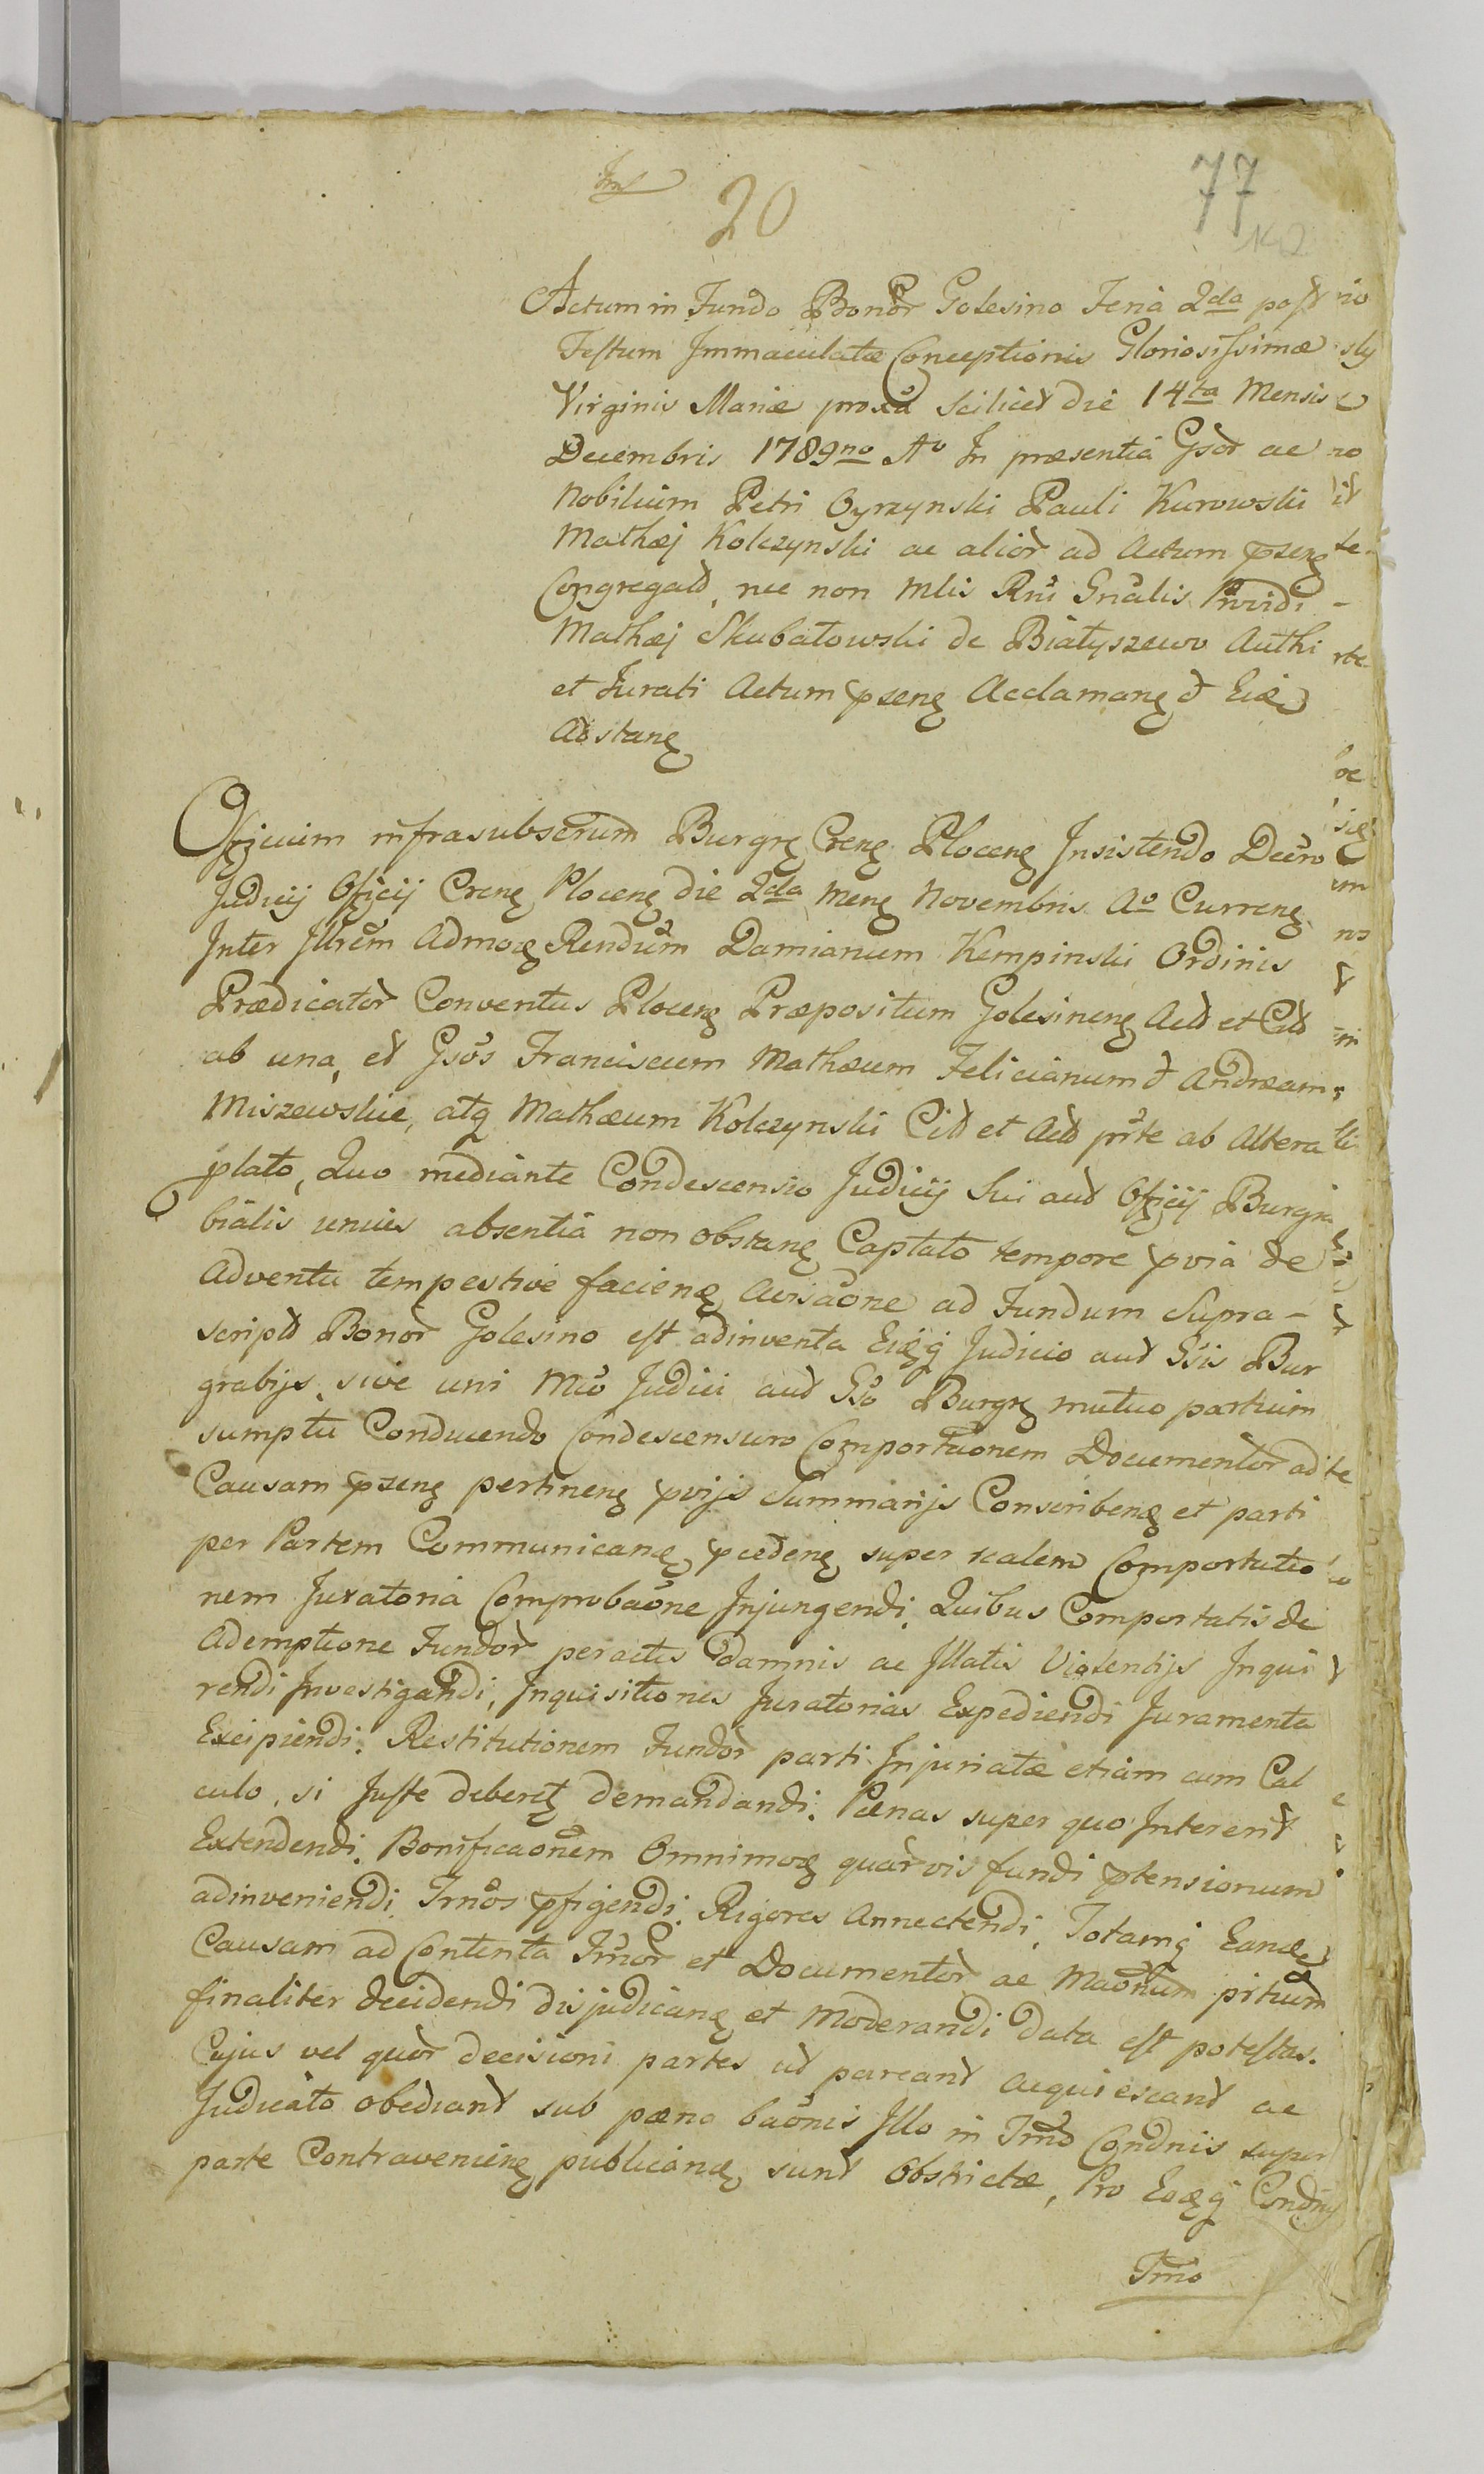 20
77
142
Actum in Fundo Bonor Golesino Feria 2da post
Festum Immaculatæ Conceptionis Gloriosissimæ
Virginis Mariæ proxa Scilicet die 14ta Mensis
Decembris 1789no Ao In præsentiâ Gsor ac
Nobilium Petri Gyrzynski Pauli Kurowski
Mathæj Kolczynski ac alior ad Actum psens
Congregat, nec non Mlis Rni Gnalis Prvidi
Mathæj Skubatowski de Białyszewo Authi
et Jurati Actum psens Acclamans et
Adstans
Officium infrasubscrum Burgrs Crens Plocens Insistendo Decro
Judicij Officij Crens Plocens die 2da Mens Novembris Ao Currens
Inter Illrem Admos Rendum Damianum Kempinski Ordinis
Prædicator Conventus Plocens Præpositum Golesinens Actt et Citt
ab una, et Gsos Franciscum Mathæum Felicianum et Andream
Miszewskie, atq Mathæum Kolczynski Citt et Actt prte ab Altera
plato, Quo mediante Condescensio Judicij Sui aut Officij Burgra
bialis unius absentiâ non obstans Captato tempore pviâ de
Adventu tempestive faciens Avisaone ad Fundum Supra-
script Bonor Golesino est adinventa Judicio aut Gsis Bur
grabijs, sive uni Mco Judici aut Gso Burgrs mutuo partium
sumptu Conducendo Condescensuro Comportaonem Documentor ad
Causam psens pertinens pvijs Summarijs Conscribens et parti
per Partem Communicans pcedens super realem Comportatio
nem Juratoriâ Comprobaone Injungendi. Quibus Comportatis de
Ademptione Fundor peractis damnis ac Illatis Violentijs Inqui
rendi Investigandi, Inquisitiones Juratorias Expediendi Juramenta
Excipiendi. Restitutionem Fundor parti Injuriatæ etiam cum Cal
culo, si Juste deberet demandandi. Pænas super quo Intererit
Extendendi. Bonificaonem Omnimos quarvis fundi ptensionum
adinveniendi. Trnos pfigendi. Rigores Annectendi. Totamq
Causam ad Contenta Trnor et Documentor ac Maonum prtium
finaliter decidendi disjudicans et Moderandi data est potestas.
Cujus vel quor decisioni partes ut pareant acquiescant ac
Judicato obediant sub pæna baonis Illo in Trno Condnis super
parte Contraveniens publicans sunt Obstrictæ, Pro Condnis
Trno